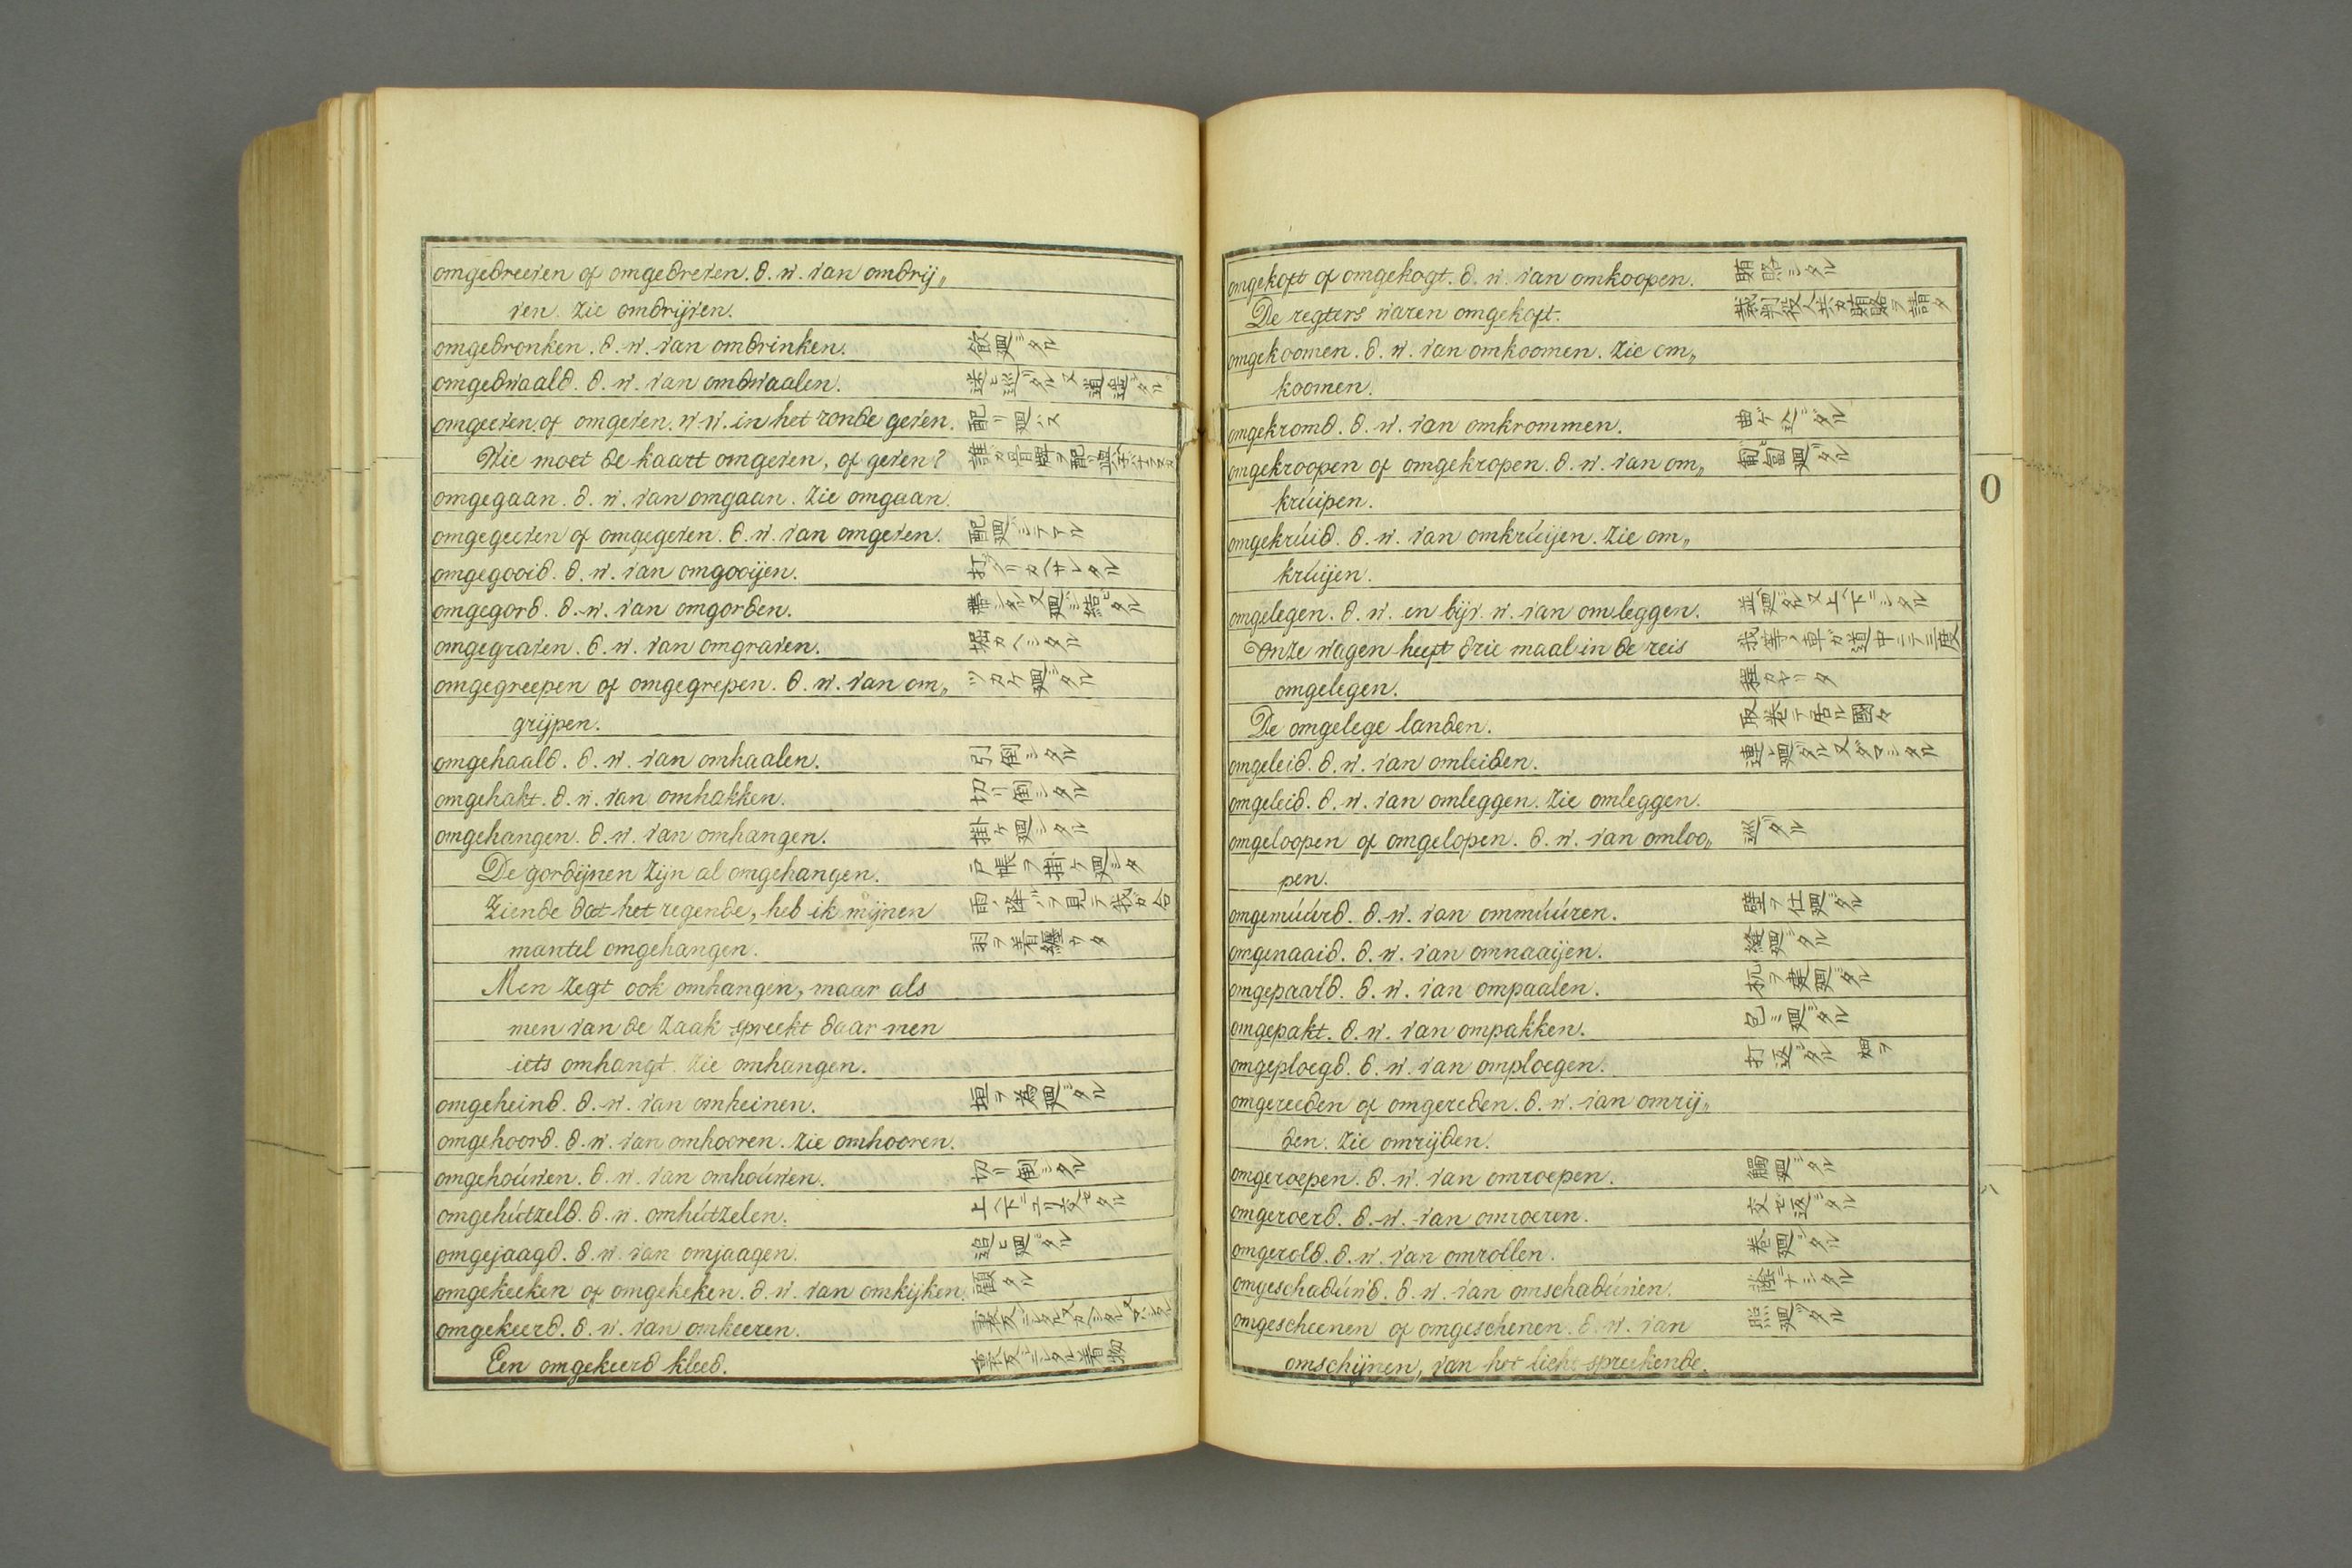 omgedreeven of omgedreven. d. w. van omdrij„
ven. Zie omdrijven.
omgedronken. d. w. van omdrinken. 飲廻シタル
omgedwaald. d. w. van omdwaalen. 迷ヒ巡リタル又
omgeeven of omgeven. w. w. in het ronde geven. 配リ廻ハス
Wie moet de kaart omgeven, of geven? 誰カ骨牌ヲ配リ廻
omgegaan. d. w. van omgaan. Zie omgaan.
omgegeeven of omgegeven. d. w. van omgeven. 配廻シテアル
omgegooid. d. w. van omgooijen. 打
omgegord. d. w. van omgorden. 帯シタル又廻シ結ヒタル
omgegraven. d. w. van omgraven. 堀カヘシタル
omgegreepen of omgegrepen. d. w. van om„ ツカケ廻シタル
grijpen.
omgehaald. d. w. van omhaalen. 引倒シタル
omgehakt. d. w. van omhakken. 切リ倒シタル
omgehangen. d. w. van omhangen. 掛ケ廻シタル
De gordijnen zijn al omgehangen. 戸帳ヲ掛ケ廻シタ
Ziende dat het regende, heb ik mijnen 雨ノ降ルヲ見テ我カ合
mantel omgehangen. 羽ヲ着纏フタ
Men zegt ook omhangen, maar als
men van de zaak spreekt daar men
iets omhangt. Zie omhangen.
omgeheind. d. w. van omheinen. 垣ヲ為廻シタル
omgehoord. d. w. van omhooren. Zie omhooren.
omgehoúwen. d. w. van omhoúwen. 切リ倒シタル
omgehútzeld. d. w. omhútzelen. 上ヘ下ニユリ交セタル
omgejaagd. d. w. van omjaagen. 追ヒ廻シタル
omgekeeken of omgekeken. d. w. van omkijken. 顧タル
omgekeerd. d. w. van omkeeren. 裏反シニシタル又
Een omgekeerd kleed. 裏反シニシタル着物
omgekoft of omgekogt. d. w. van omkoopen. 賄賂シタル
De regters waren omgekoft. 裁判役人共カ賄賂ヲ請タ
omgekoomen. d. w. van omkoomen. Zie om„
koomen.
omgekromd. d. w. van omkrommen. 曲ケ込ンダル
omgekroopen of omgekropen. d. w. van om„ 匍匐廻リタル
krúipen.
omgekrúid. d. w. van omkrúijen. Zie om„
krúijen.
omgelegen. d. w. en bijv. w. van omleggen. 並廻シタル又上ヘ下ニシタル
Onze wagen heeft drie maal in de reis 我等ノ車カ道中ニテ三度
omgelegen.
De omgelege landen. 取巻テ居ル國々
omgeleid. d. w. van omleiden. 連レ廻シタル又ダマシタル
omgeleid. d. w. van omleggen. Zie omleggen.
omgeloopen of omgelopen. d. w. van omloo„ 巡リタル
pen.
omgemúúrd. d. w. van ommúúren. 壁ヲ仕廻シタル
omgenaaid. d. w. van omnaaijen. 縫廻シタル
omgepaald. d. w. van ompaalen. 杭ヲ建廻シタル
omgepakt. d. w. van ompakken. 包ミ廻シタル
omgeploegd. d. w. van omploegen. 打返シタル 畑ヲ
omgereeden of omgereden. d. w. van omrij„
den. Zie omrijden.
omgeroepen. d. w. van omroepen. 觸廻シタル
omgeroerd. d. w. van omroeren. 交セ返シタル
omgerold. d. w. van omrollen. 巻廻シタル
omgeschadúwd. d. w. van omschadúwen. 蔭ニナシタル
omgescheenen of omgeschenen. d. w. van 照廻リタル
omschijnen, van het licht spreekende.
O